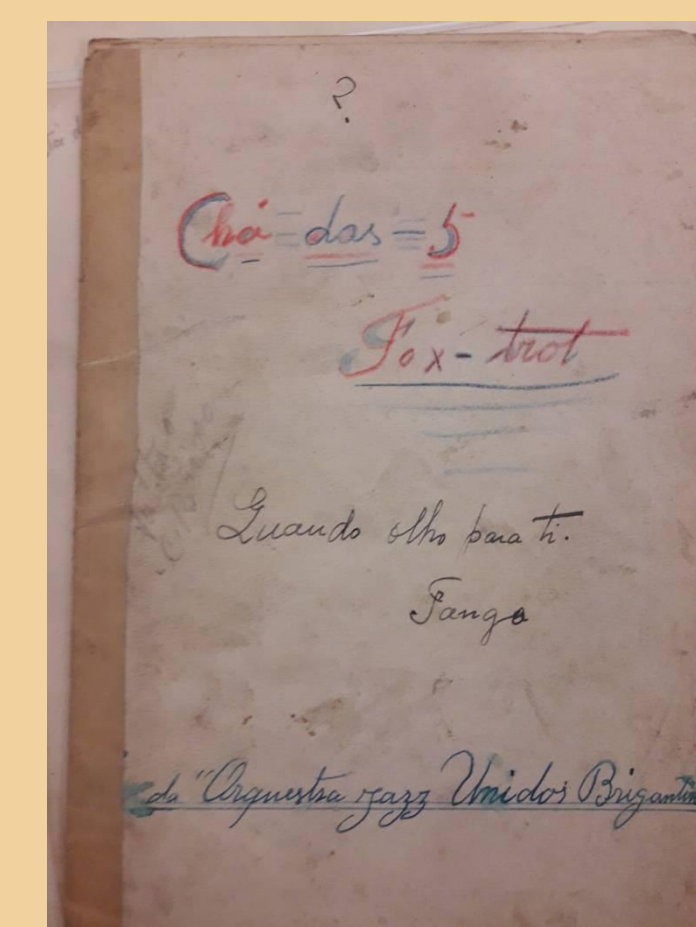 ?
Chá = das = 5
Fox-trot
Quando olho para ti.
Tango
da "Orquestra jazz Unidos